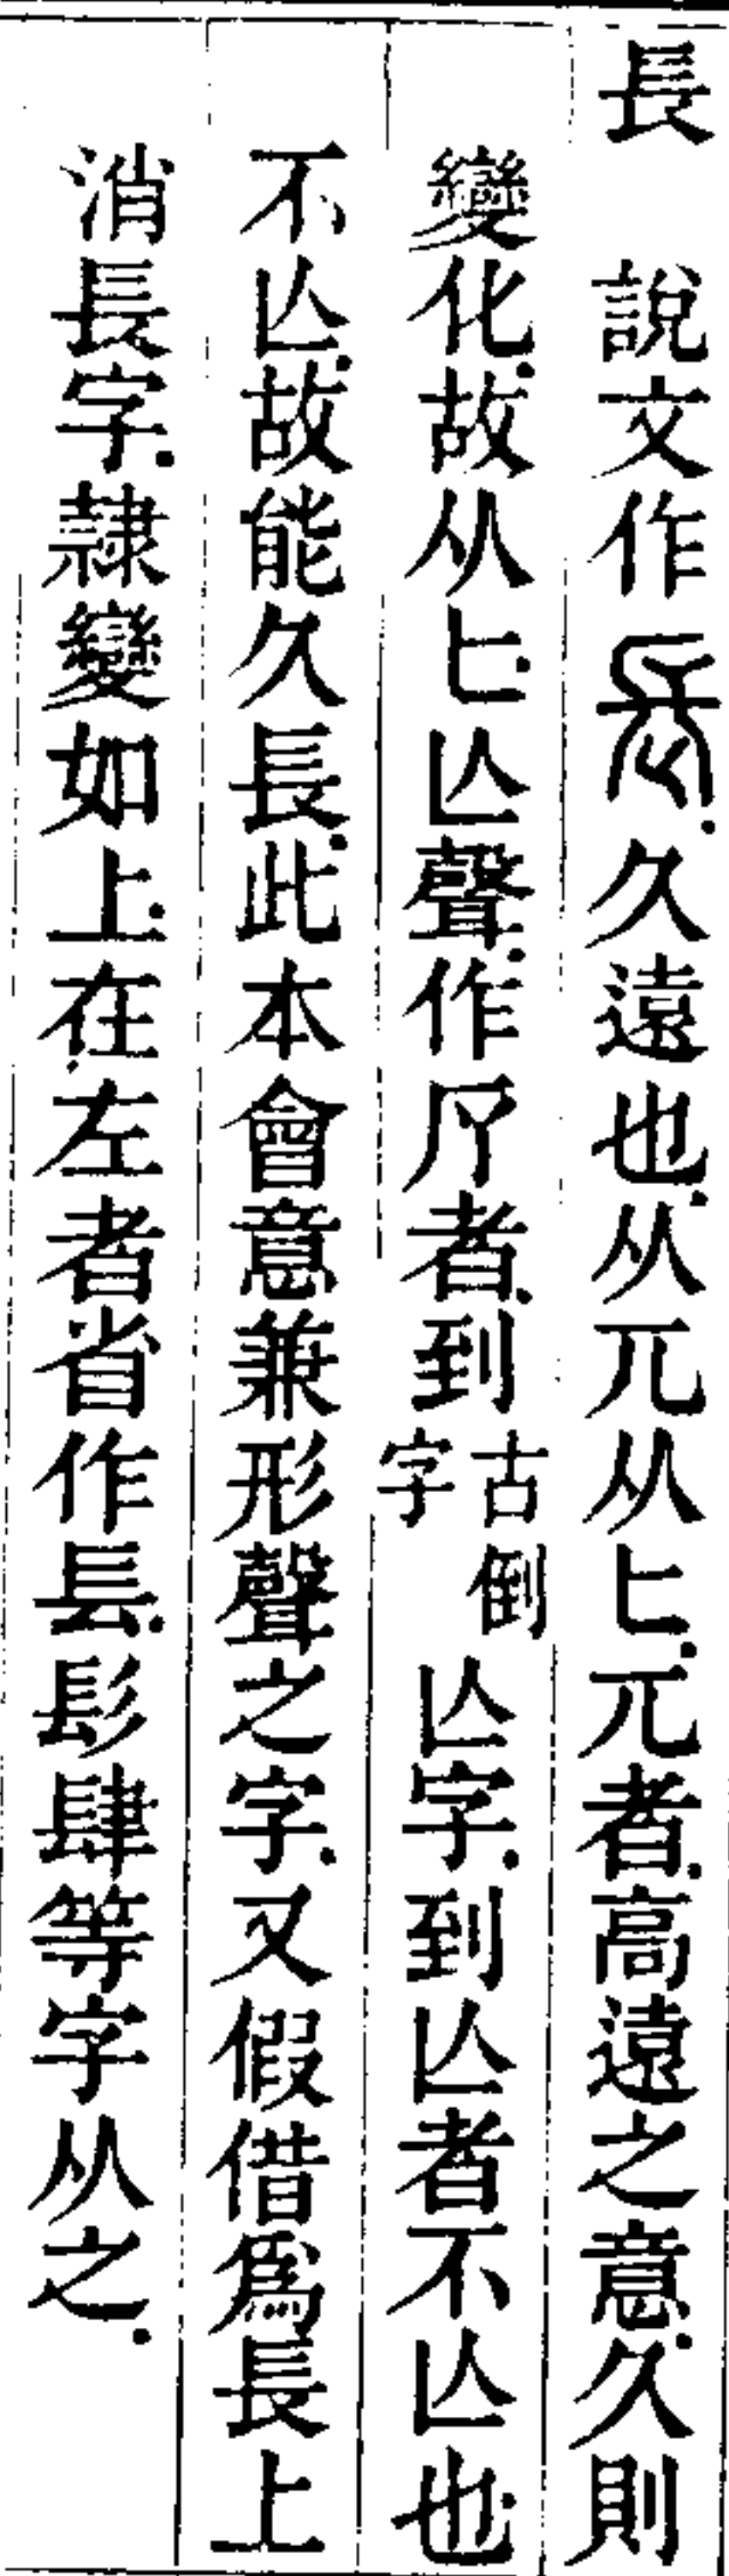 長 說文作. 久遠也. 从兀从匕. 兀者. 高遠之意. 久則
變化. 故从匕. 亾聲. 作𠂆者. 到古倒字亾字. 到亾者不亾也.
不亾. 故能久長. 此本會意兼形聲之字. 又假借爲長上
消長字. 隷變如上. 在左者省作镸. 髟肆等字从之.